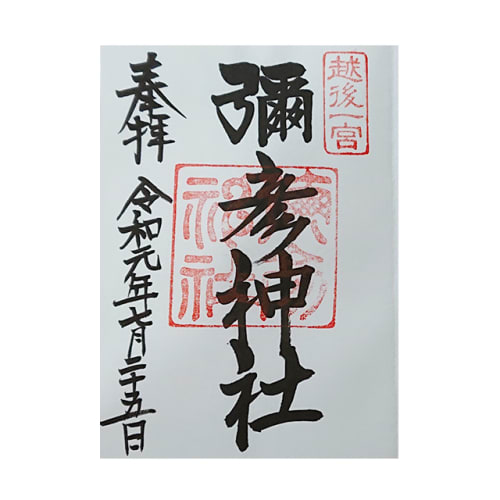 越後一宮
彌彦神社
奉拝
令和元年七月二十五日